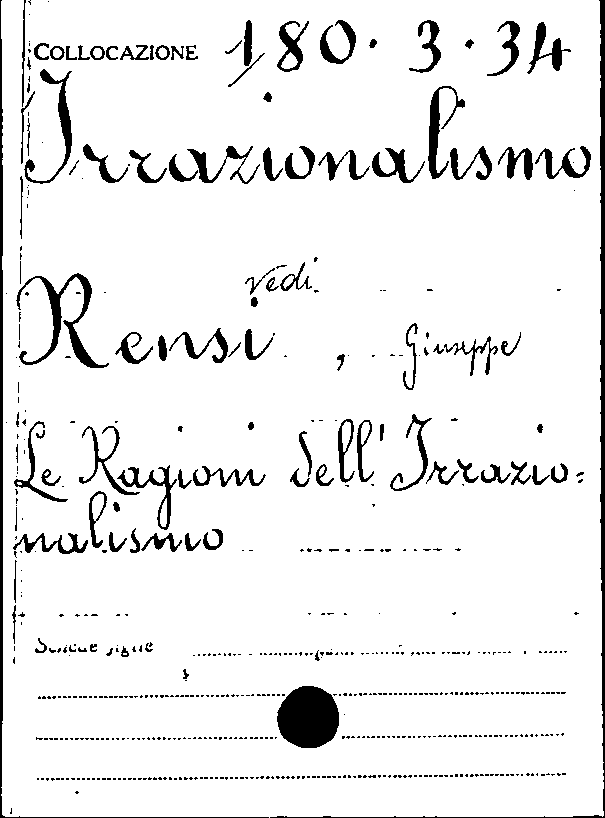 COLLOCAZIONE 180.3.34
Irrazionalismo
vedi
Rensi, Giuseppe
Le Ragioni dell'Irrazio=
nalismo
Schede figlie